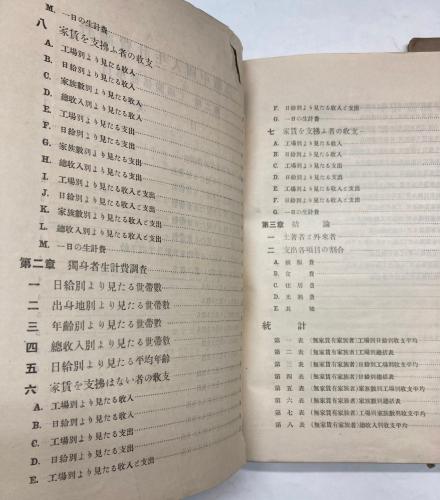 M. 一日の生計費
八 家賃を支拂ふ者の收支
A. 工場別より見たる收入
B. 日給別より見たる收入
C. 家族數別より見たる收入
D. 總收入別より見たる收入
E. 工場別より見たる支出
F. 日給別より見たる支出
G. 家族數別より見たる支出
H. 總收入別より見たる支出
I. 工場別より見たる收入と支出
J. 日給別より見たる收入と支出
K. 家族數別より見たる收入と支出
L. 總收入別より見たる收入と支出
M. 一日の生計費
第二章 獨身者生計費調査
一 日給別より見たる世帶數
二 出身地別より見たる世帶數
三 年齡別より見たる世帶數
四 總收入別より見たる世帶數
五 日給別より見たる平均年齡
六 家賃を支拂はない者の收支
A. 工場別より見たる收入
B. 日給別より見たる收入
C. 工場別より見たる支出
D. 日給別より見たる支出
E. 工場別より見たる收入と支出
F. 日給別より見たる收入と支出
G. 一日の生計費
七 家賃を支拂ふ者の收支
A. 工場別より見たる收入
B. 日給別より見たる收入
C. 工場別より見たる支出
D. 日給別より見たる支出
E. 工場別より見たる收入と支出
F. 日給別より見たる收入と支出
G. 一日の生計費
第三章 結論
一 土著者と外來者
二 支出各項目の割合
A. 被服費
B. 食費
C. 住居費
D. 光熱費
E. 其他
統計
第一表 (無家賃有家族者)工場別日給別收支平均
第二表 (無家賃有家族者)工場別總括表
第三表 (無家賃有家族者)日給別工場別收支平均
第四表 (無家賃有家族者)日給別總括表
第五表 (無家賃有家族者)家族數別工場別收支平均
第六表 (無家賃有家族者)家族數別總括表
第七表 (無家賃有家族者)工場別家族數別收支平均
第八表 (無家賃有家族者)總收入別收支平均